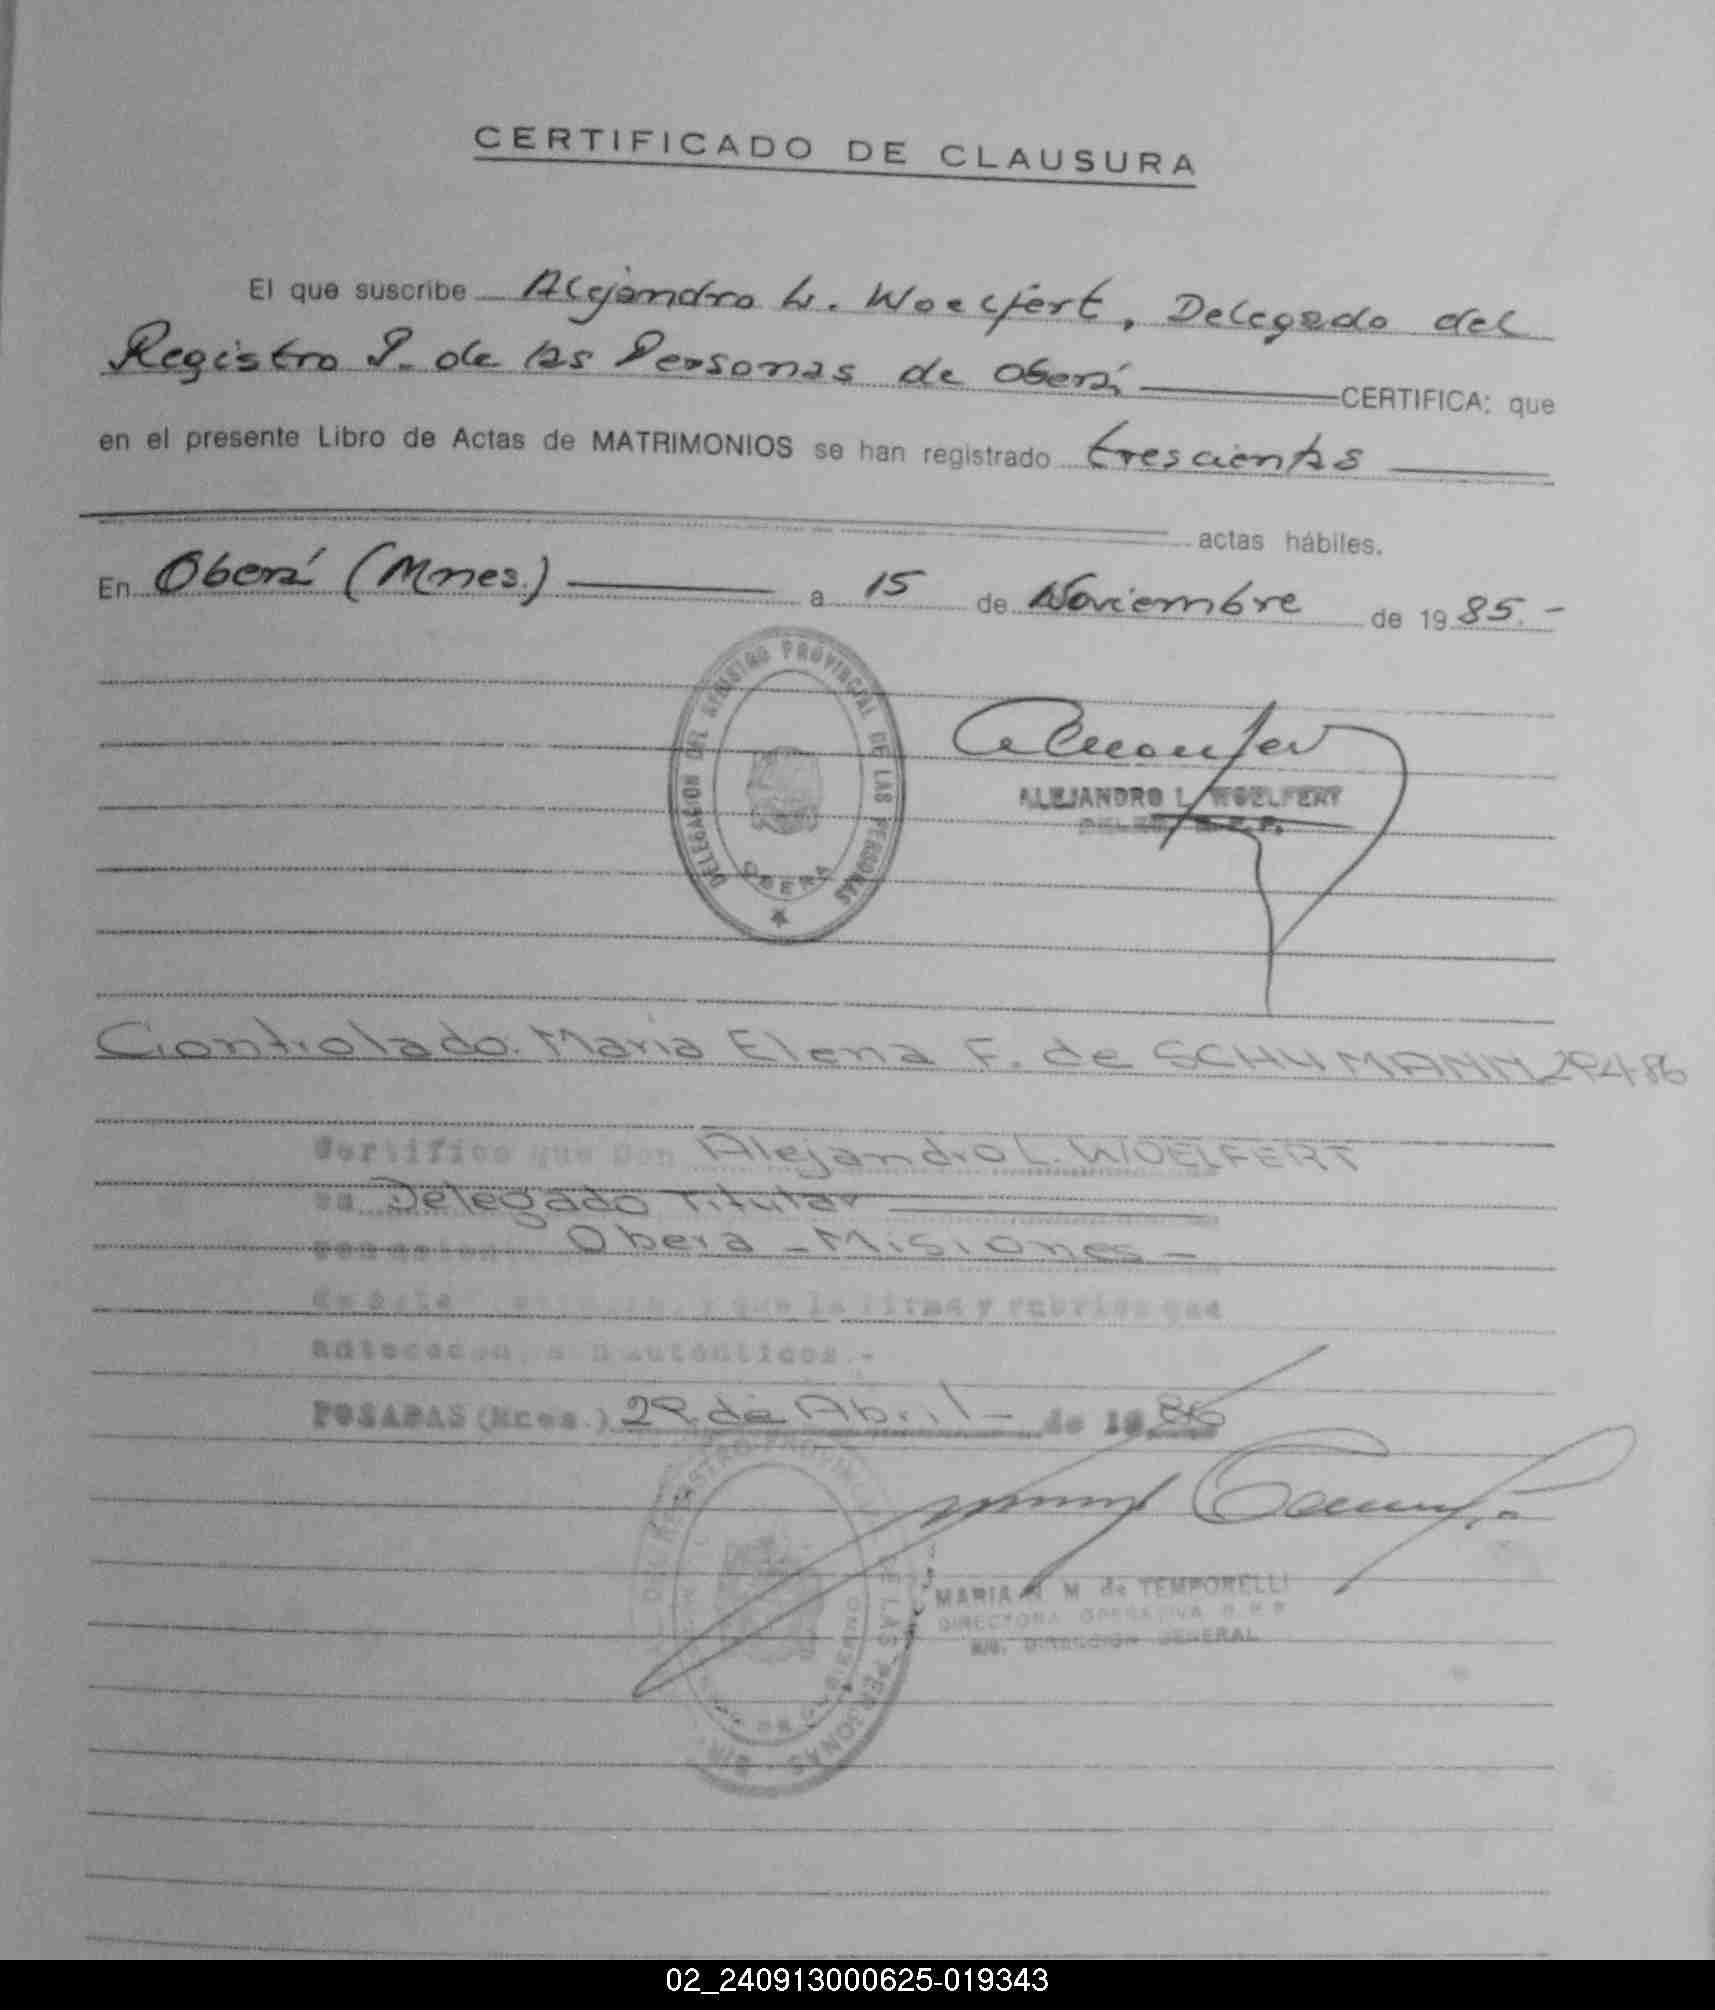 CERTIFICADO DE CLAUSURA
El que suscribe Alejandro L. Woelfert, Delegado del
Registro P. de las Personas de Oberá CERTIFICA: que
en el presente Libro de Actas de MATRIMONIOS se han registrado trescientas
actas hábiles.
En Oberá (Mnes.) a 15 de Noviembre de 1985.-
DELEGACION DEL REGISTRO PROVINCIAL DE LAS PERSONAS
OBERA
ALEJANDRO L. WOELFERT
Controlado. Maria Elena F. de SCHUMANN 29-4-86
Certifico que Don Alejandro L. WOELFERT
es Delegado Titular
Obera - Misiones -
y que la firma y rubrica que
anteceden, son auténticos.-
POSADAS (Mnes.) 29 de Abril - de 1986
DEL REGISTRO PROVINCIAL DE LAS PERSONAS
DE GOBIERNO
MARIA M. de TEMPORELLI
DIRECTORA OPERATIVA R.P.P.
DIRECCION GENERAL
02_240913000625-019343